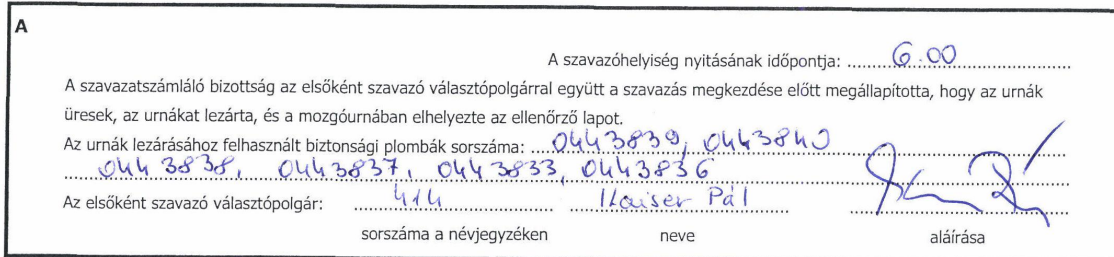 A
A szavazóhelyiség nyitásának időpontja: 6.00
A szavazatszámláló bizottság az elsőként szavazó választópolgárral együtt a szavazás megkezdése előtt megállapította, hogy az urnák
üresek, az urnákat lezárta, és a mozgóurnában elhelyezte az ellenőrző lapot.
Az urnák lezárásához felhasznált biztonsági plombák sorszáma: 0443839, 0443840
0443838, 0443837, 0443833, 0443836
Az elsőként szavazó választópolgár: 414 Kaiser Pál
sorszáma a névjegyzéken neve aláírása